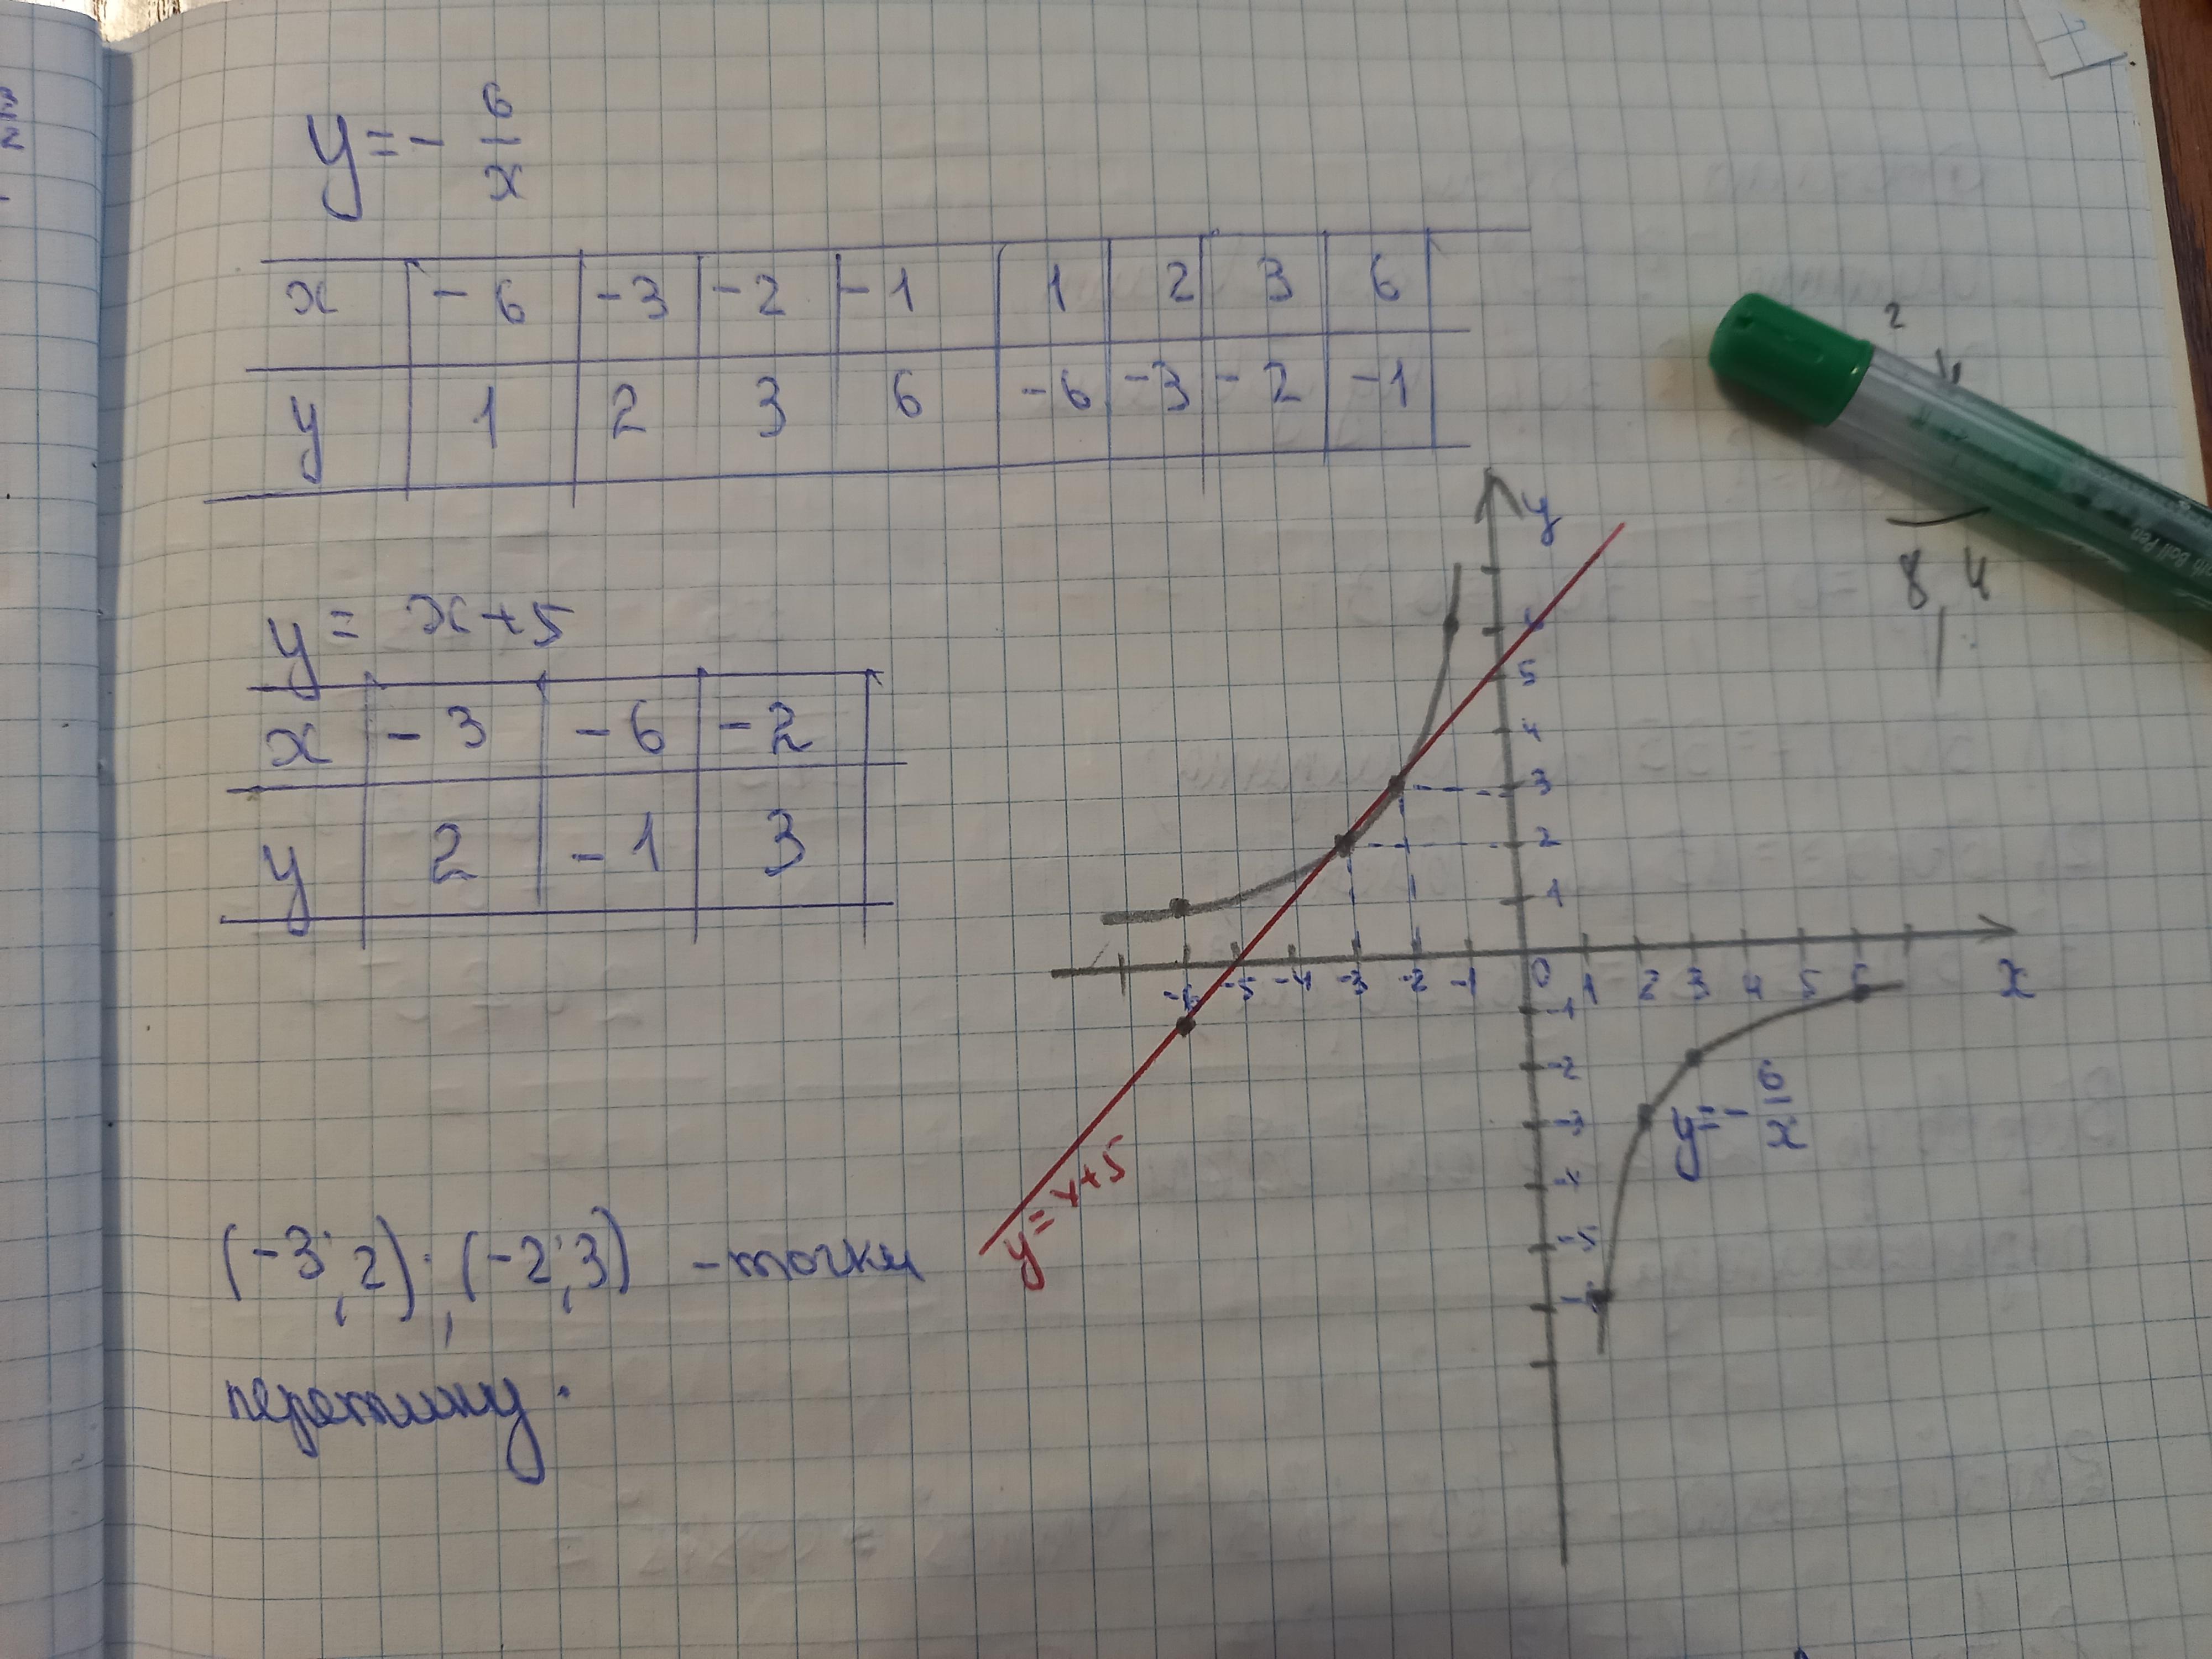 y = - 6/x
x | -6 | -3 | -2 | -1 | 1 | 2 | 3 | 6
y | 1 | 2 | 3 | 6 | -6 | -3 | -2 | -1
y = x+5
x | -3 | -6 | -2
y | 2 | -1 | 3
y
6
5
4
3
2
1
-6 -5 -4 -3 -2 -1 0 1 2 3 4 5 6 x
-1
-2
-3
-4
-5
-6
y = - 6/x
y = x+5
(-3; 2); (-2; 3) - точки
перетину.
2
8,4
Ball Pen